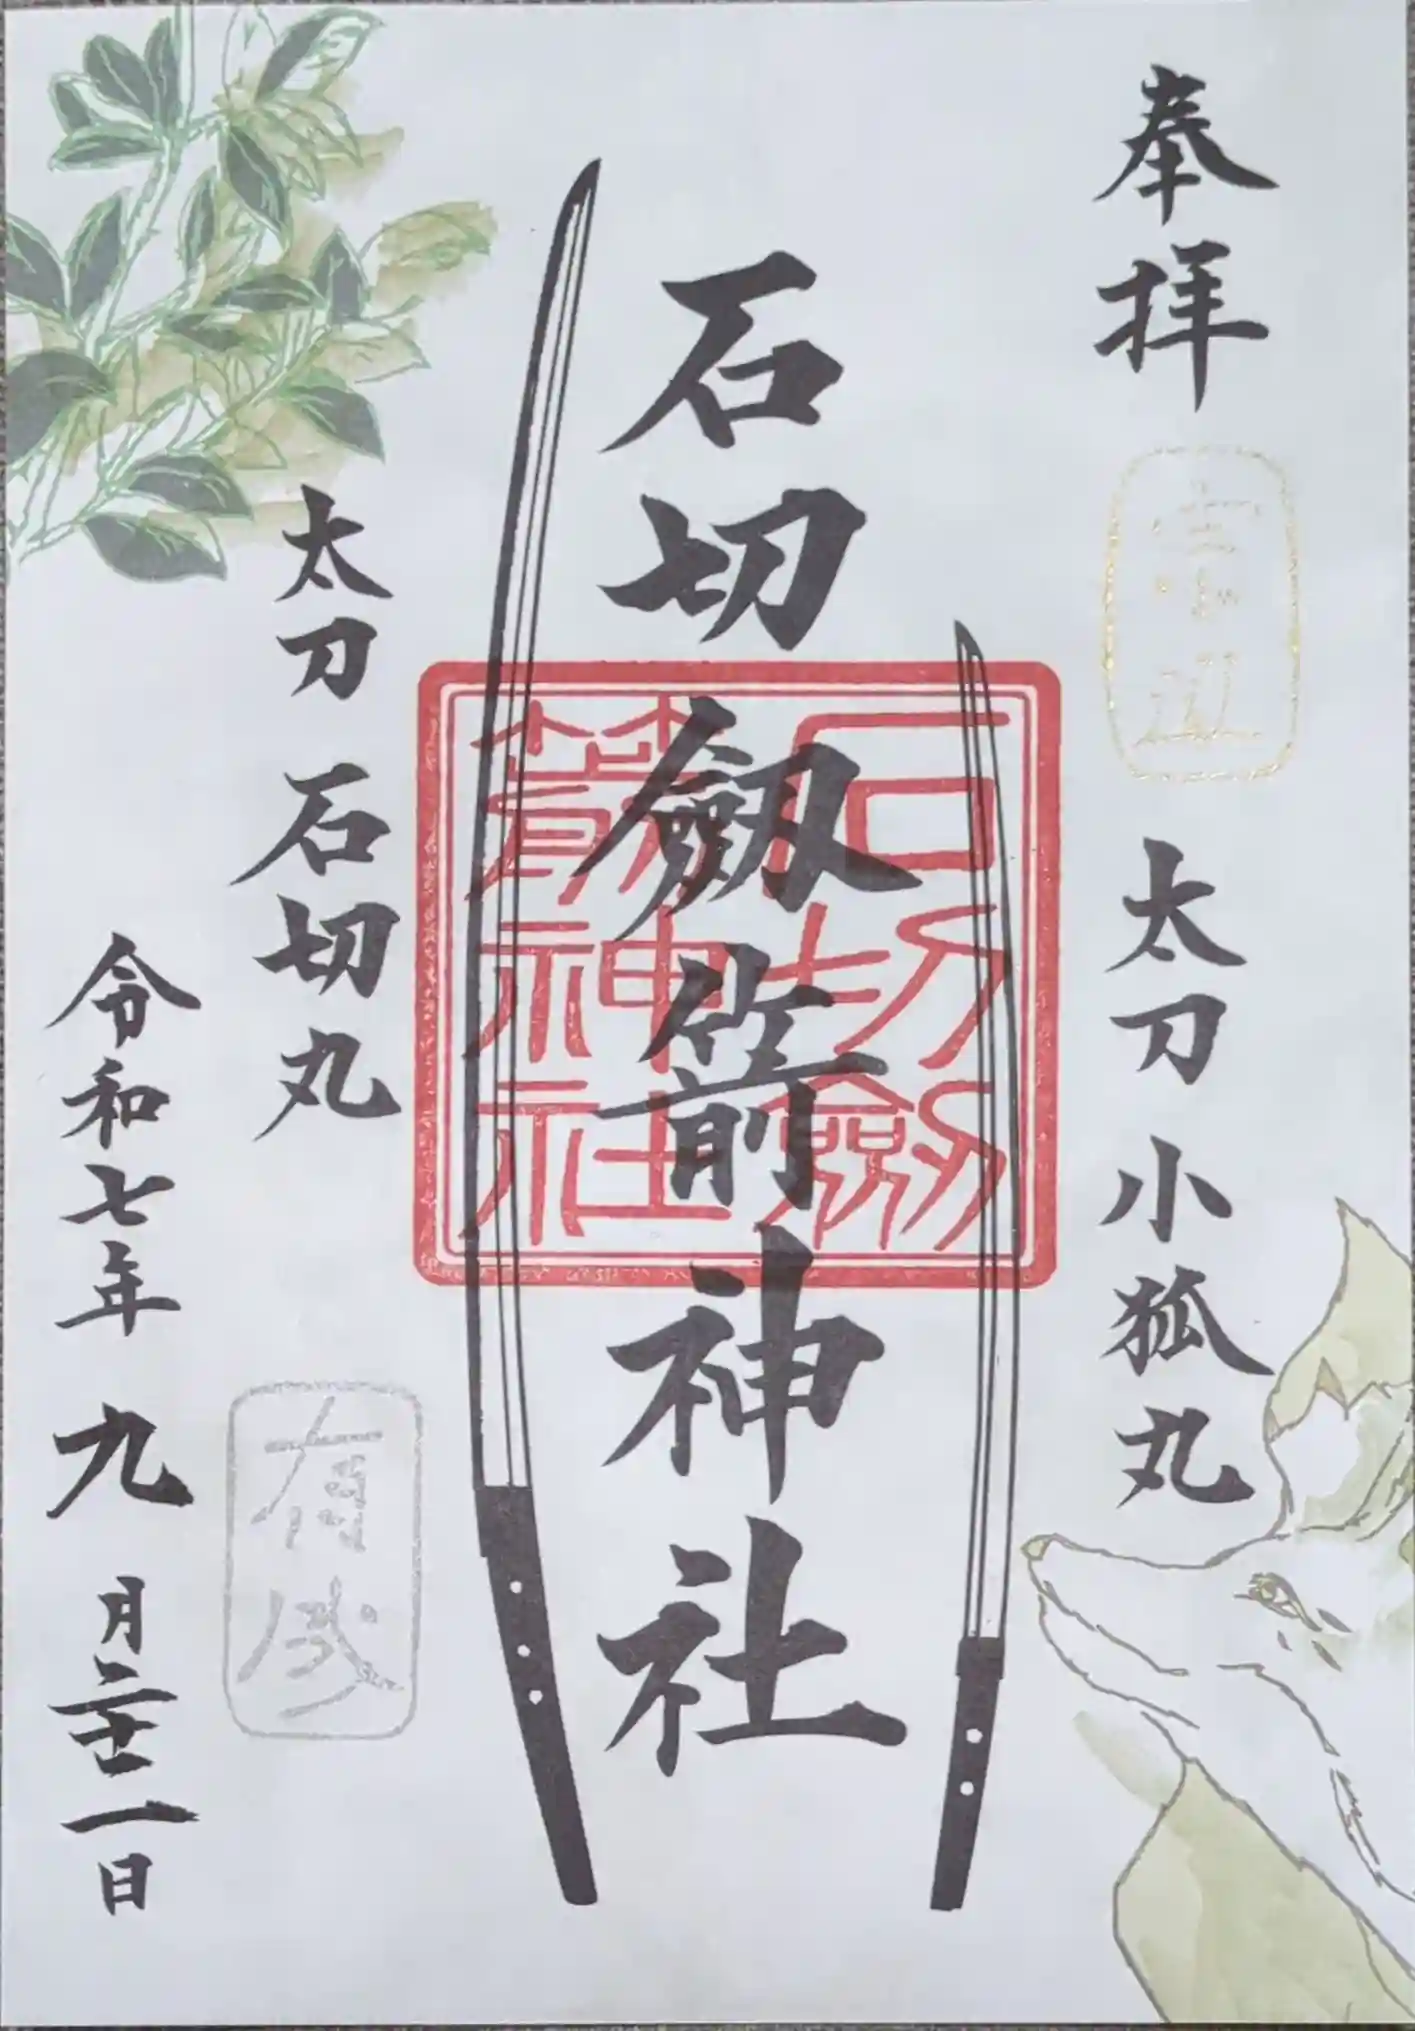 奉拝
宗近
太刀 小狐丸
石切劔箭神社
石切劔
箭神社
太刀 石切丸
有成
令和七年 九月二十一日